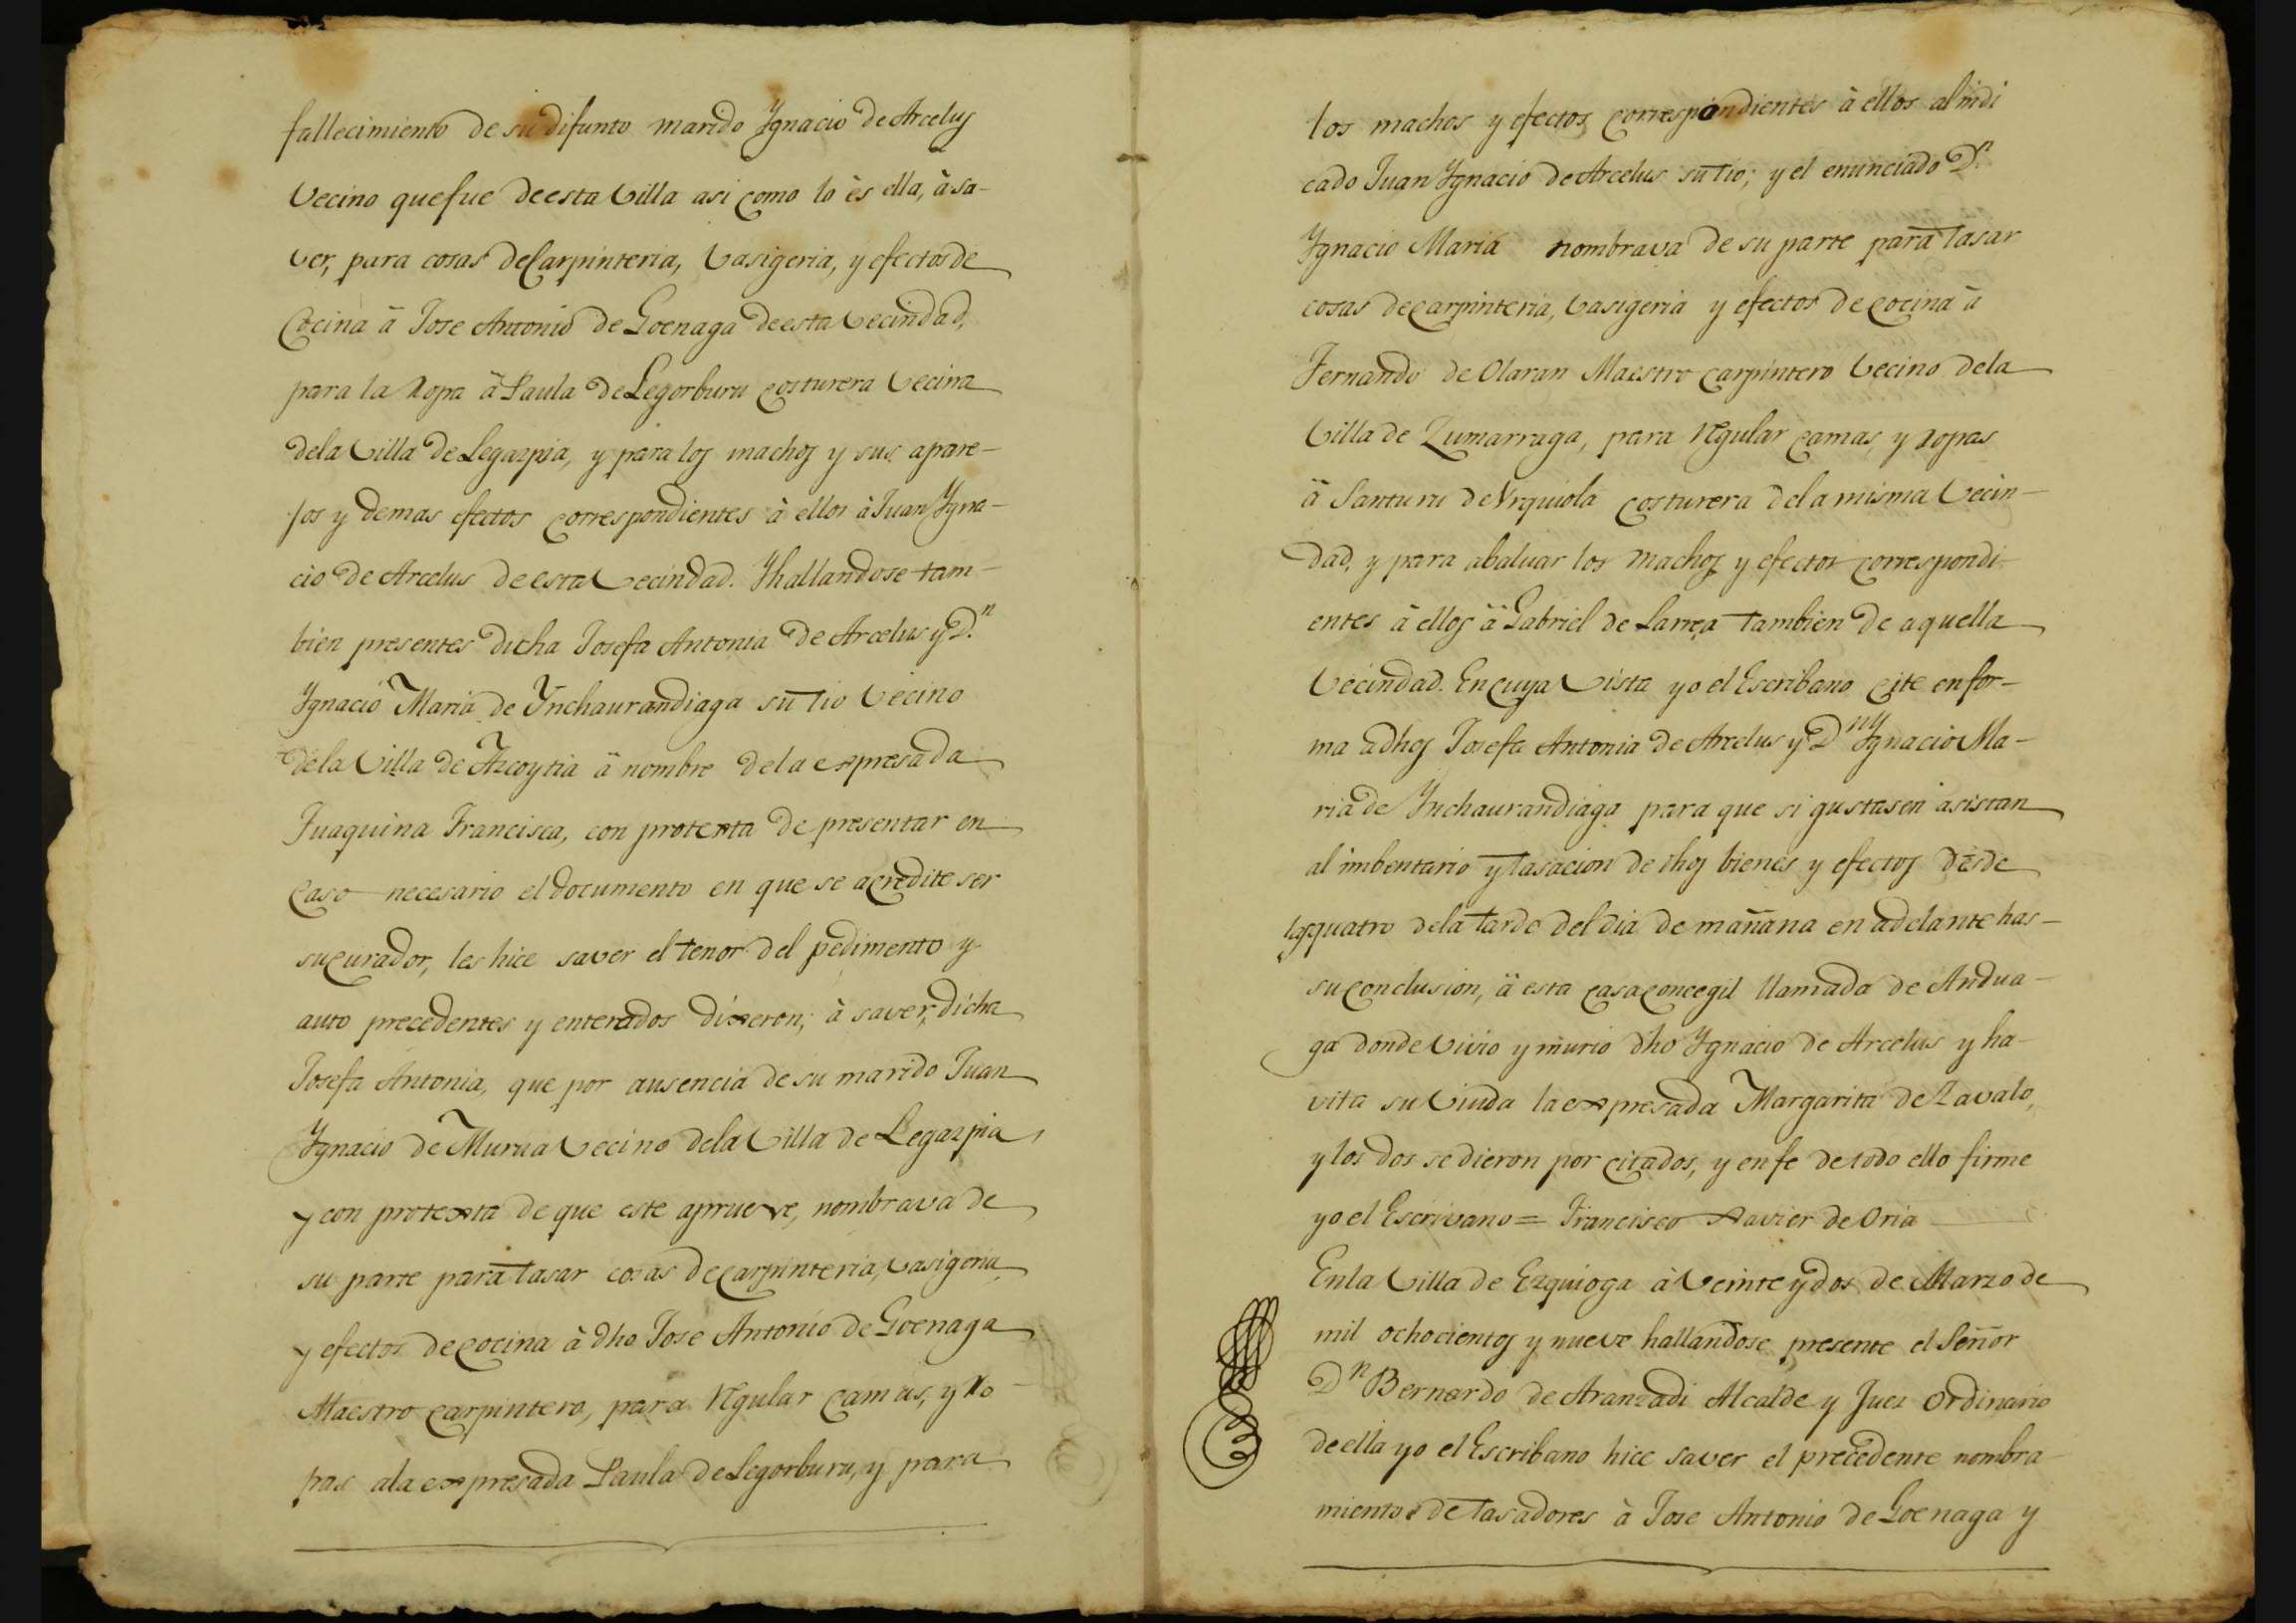 fallecimiento de su difunto marido Ygnacio de Arcelus
vecino que fue de esta Villa asi como lo ès ella, à sa-
ver, para cosas de Carpinteria, vasigeria, y efectos de
Cocina à Jose Antonio de Goenaga de esta vecindad,
para la Ropa à Paula de Legorburu costurera vecina
dela Villa de Legazpia, y para los machos y sus apare-
jos y demas efectos correspondientes à ellos à Juan Ygna-
cio de Arcelus de esta vecindad. Y hallandose tam-
bien presentes dicha Josefa Antonia de Arcelus y D.n
Ygnacio Maria de Ynchaurandiaga su tio vecino
dela Villa de Azcoytia à nombre dela expresada
Juaquina Francisca, con protexta de presentar en
caso necesario el documento en que se acredite ser
su curador, les hice saver el tenor del pedimento y
auto precedentes y enterados dixeron; à saver, dicha
Josefa Antonia, que por ausencia de su marido Juan
Ygnacio de Murua vecino dela Villa de Legazpia
y con protexta de que este aprueve, nombrava de
su parte para tasar cosas de carpinteria, vasigeria
y efectos de cocina à dho Jose Antonio de Goenaga
Maestro carpintero, para regular camas, y Ro-
pas ala expresada Paula de Legorburu, y para
los machos y efectos correspondientes à ellos al indi
cado Juan Ygnacio de Arcelus su tio; y el enunciado D.n
Ygnacio Maria nombrava de su parte para tasar
cosas de carpinteria, vasigeria y efectos de cocina à
Fernando de Olaran Maestro carpintero vecino dela
Villa de Zumarraga, para regular camas, y ropas
à Santuru de Urquiola costurera dela misma vecin-
dad, y para abaluar los machos y efectos correspondi-
entes à ellos à Gabriel de Larrea tambien de aquella
vecindad. En cuya vista yo el Escribano cite en for-
ma adhos Josefa Antonia de Arcelus y Dn Ygnacio Ma-
ria de Ynchaurandiaga para que si gustasen asistan
al imbentario y tasacion de dhos bienes y efectos desde
las quatro dela tarde del dia de mañana en adelante has-
su conclusion, à esta casa concegil llamada de Andua-
ga donde vivio y murio dho Ygnacio de Arcelus y ha-
vita su viuda la expresada Margarita de Zavalo,
y los dos se dieron por citados, y en fe de todo ello firme
yo el Escrivano = Francisco Xavier de Oria
En la Villa de Ezquioga à veinte y dos de Marzo de
mil ochocientos y nueve hallandose presente el Señor
Dn Bernardo de Aranzadi Alcalde y Juez Ordinario
de ella yo el Escribano hice saver el precedente nombra-
miento de tasadores à Jose Antonio de Goenaga y